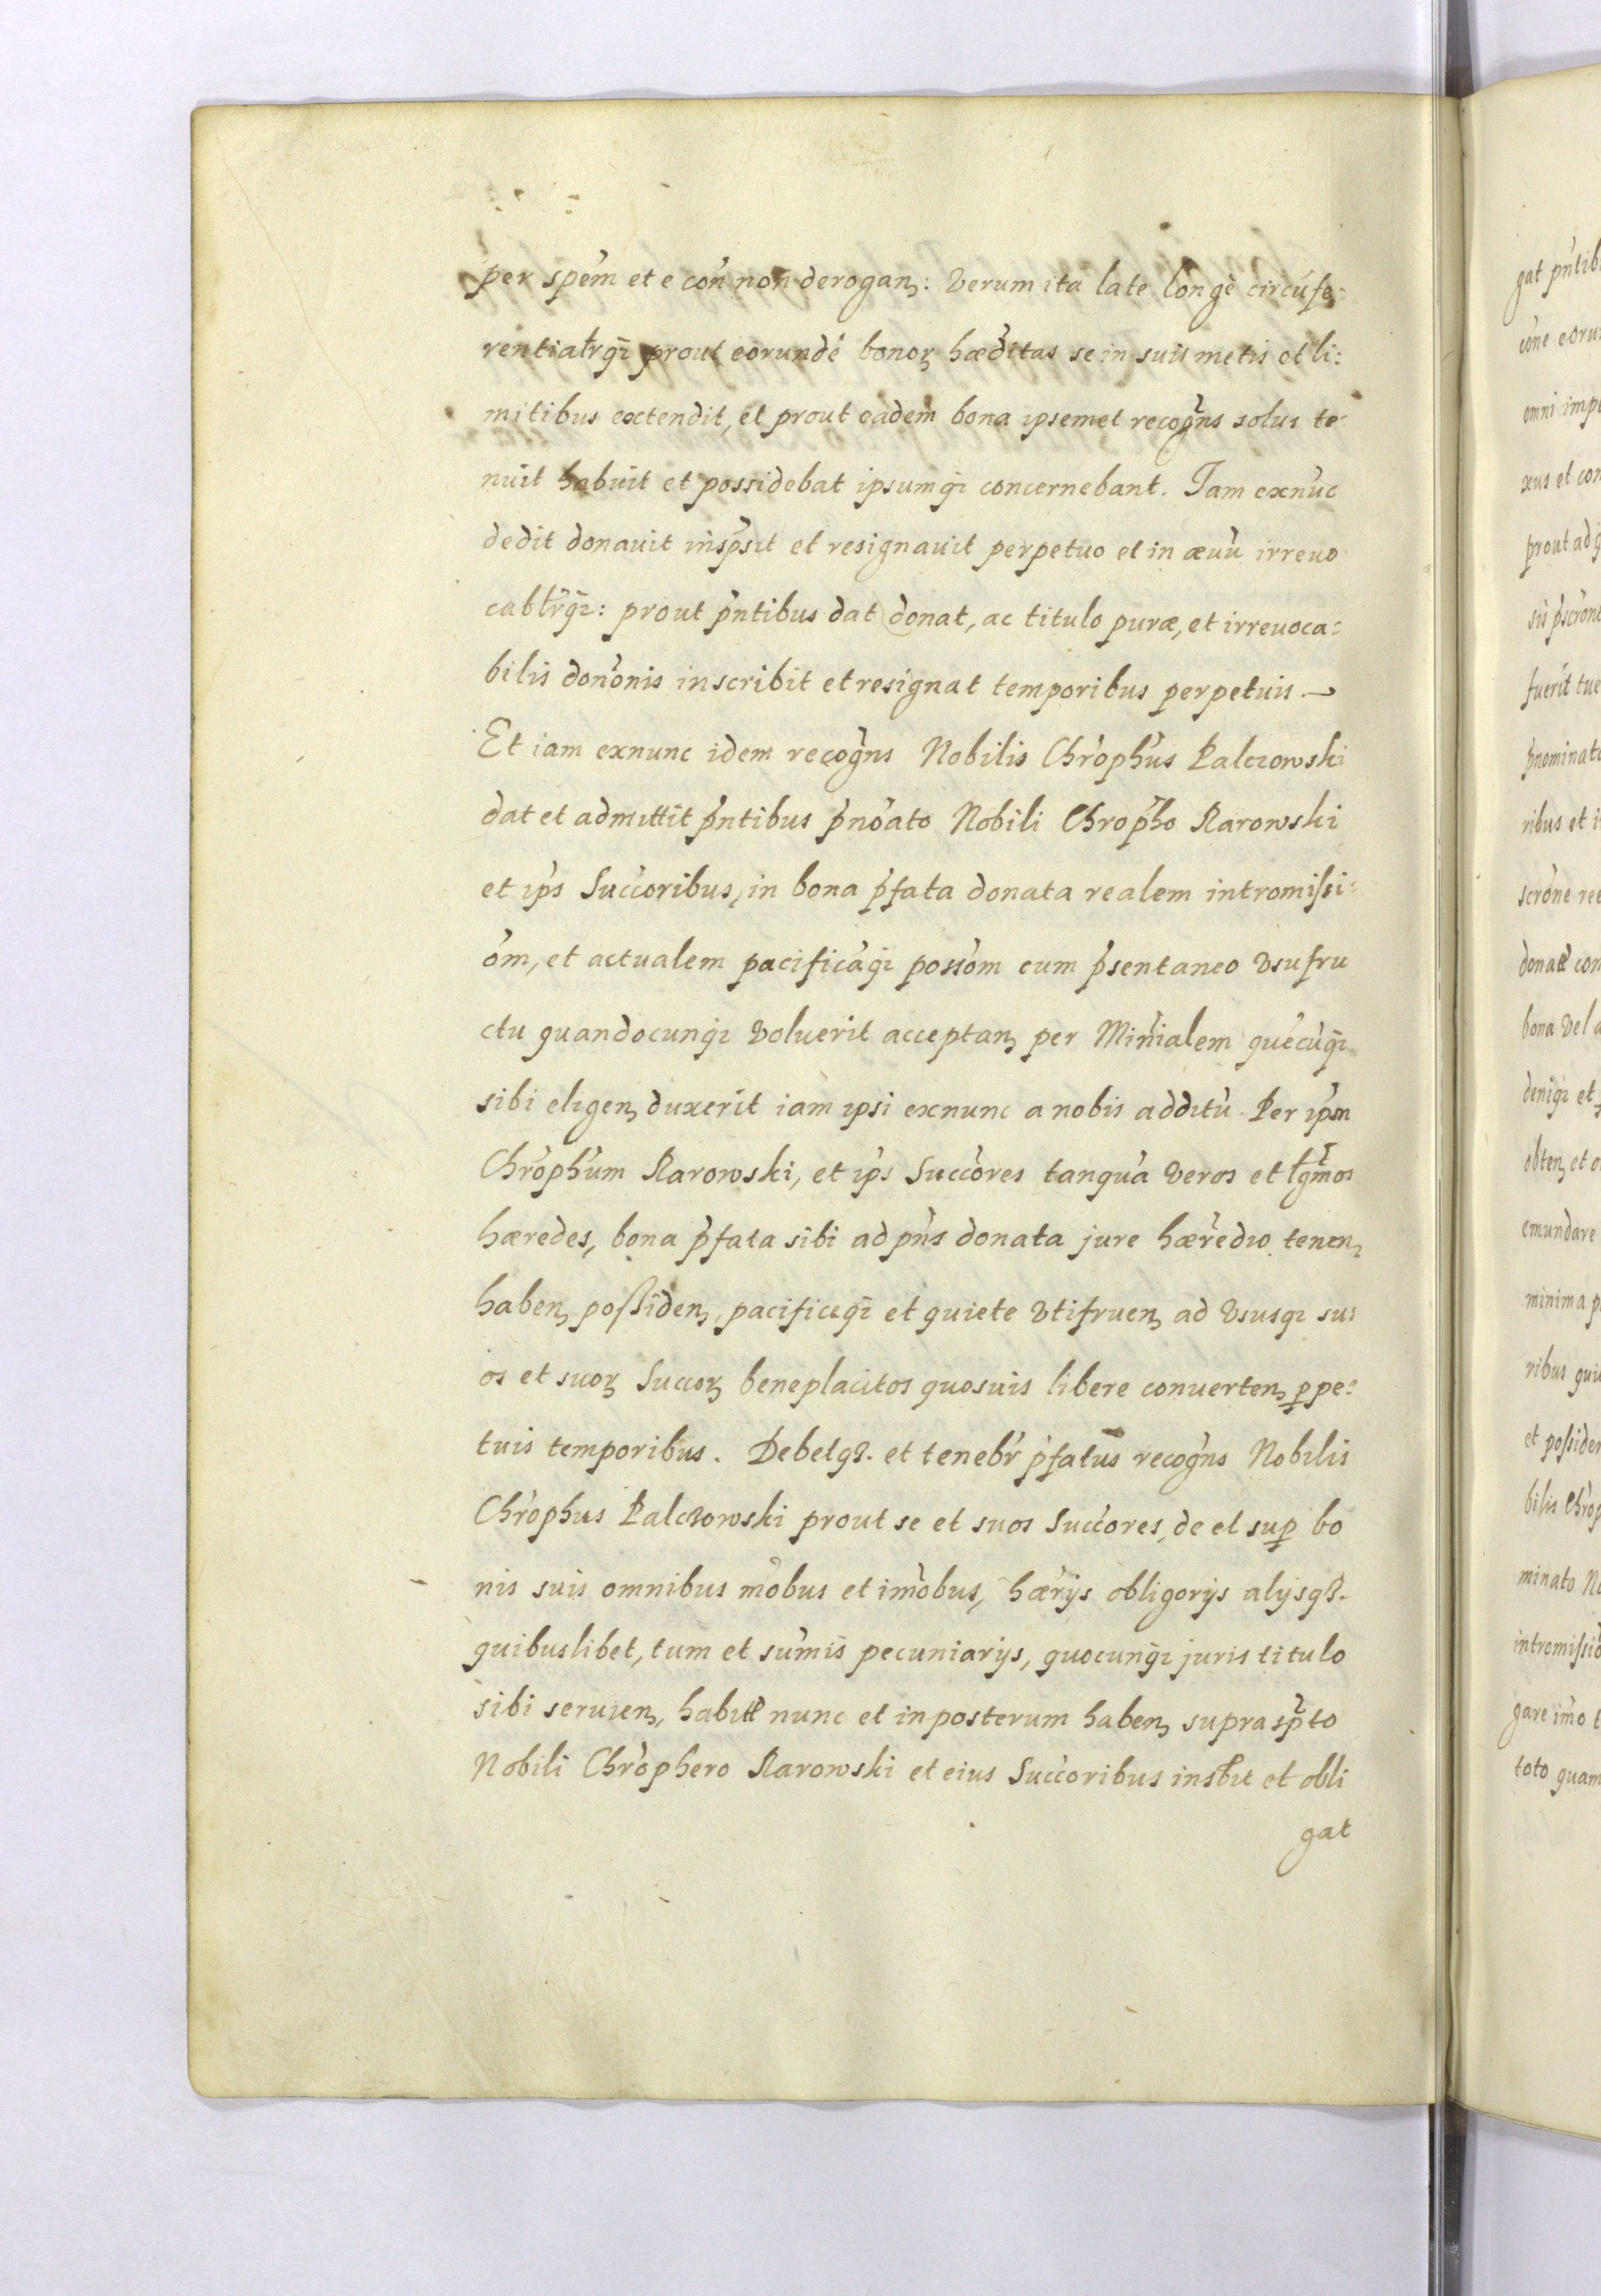 per spem̄ et e con̄ non derogan: Verum ita late longè circúfe:
rentialrq3 prout eorundē bonoꝝ hæditas se in suis metis et li:
mitibus extendit, et prout eadem bona ipsemet recogns solus te
nuit habuit et possidebat ipsumq3 concernebant. Iam exnuc
dedit donauit inspsit et resignauit perpetuo et in æuū irreuo
cablrq3: prout pntibus dat donat, ac titulo puræ, et irreuoca:
bilis dononis inscribit et resignat temporibus perpetuis.
Et iam exnunc idem recogns Nobilis Chrophus Palczowski
dat et admittit pntibus pnoato Nobili Chropho Rarowski
et ips Succoribus, in bona pfata donata realem intromissi:
om, et actualem pacificaq3 possom cum psentaneo Vsufru
ctu quandocunq3 Voluerit acceptan per Minialem quecuq3
sibi eligen duxerit iam ipsi exnunc a nobis additū Per ipsm
Chrophum Rarowski, et ips Succores tanqua Veros et lgmos
hæredes, bona pfata sibi ad pns donata jure hæredio tenen
haben possiden, pacificeq3 et quiete Vtifruen ad Vsusq3 su:
os et suoꝝ Succoꝝ beneplacitos quosuis libere conuerten ꝑpe:
tuis temporibus. Debetq3. et tenebr pfatus recogns Nobilis
Chrophus Palczowski prout se et suos Succores, de et suꝑ bo
nis suis omnibus mobus et imobus, hærijs obligorijs alijsq3.
quibuslibet, tum et sumis pecuniarijs, quocunq3 juris titulo
sibi seruien, habitt nunc et inposterum haben supraspto
Nobili Chrophero Rarowski et eius Succoribus insbit et obli
gat
gat pntib
cone eoru
omni imp
xus et con
prout ad q
sū pscron
fuerit tue
pnominato
ribus et i
scrone ree
donatt con
bona Vel a
deniq3 et
obten et o
emundare
minima p
ribus qui
et possiden
bilis Chrop
minato No
intromissio
gare imo t
toto quam